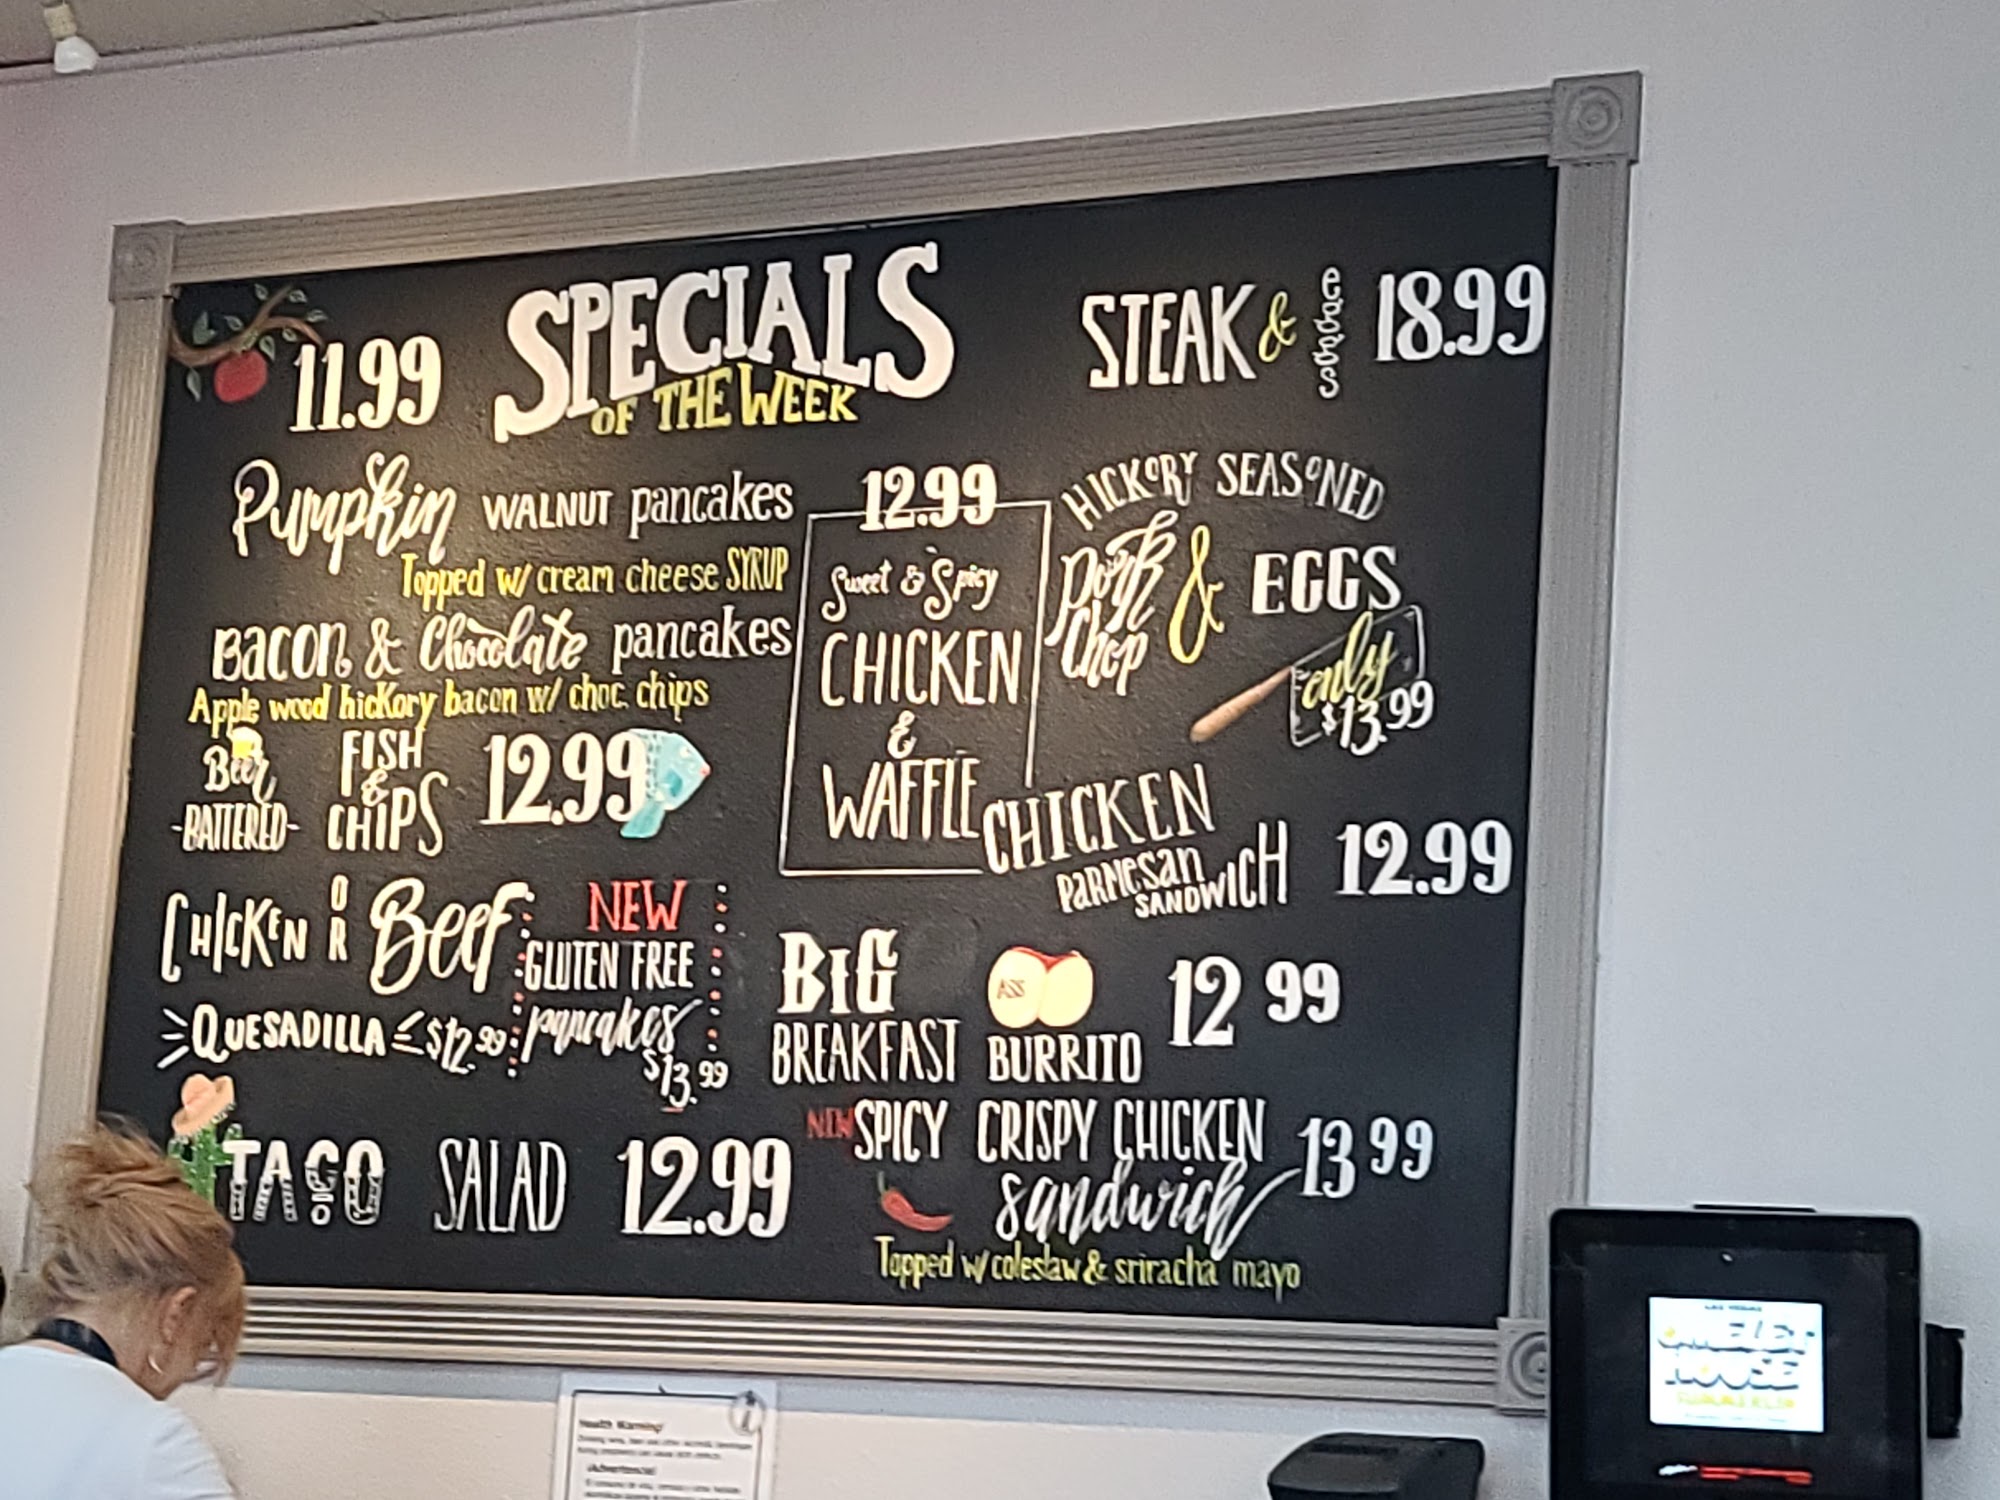 SPECIALS
OF THE WEEK
11.99
Pumpkin WALNUT pancakes
Topped w/ cream cheese SYRUP
BACON & Chocolate pancakes
Apple wood hickory bacon w/ choc. chips
Beer
-BATTERED-
FISH
&
CHIPS
12.99
CHICKEN OR Beef
QUESADILLA $12.99
NEW
GLUTEN FREE
pancakes
$13.99
TACO SALAD 12.99
12.99
Sweet & Spicy
CHICKEN
&
WAFFLE
STEAK & eggs 18.99
HICKORY SEASONED
Pork Chop & EGGS
only
$13.99
CHICKEN
PARMESAN
SANDWICH
12.99
BIG ASS 12 99
BREAKFAST BURRITO
NEW SPICY CRISPY CHICKEN
sandwich 13 99
Topped w/ coleslaw & sriracha mayo
Health Warning
¡Advertencia!
LAS VEGAS
OMELET
HOUSE